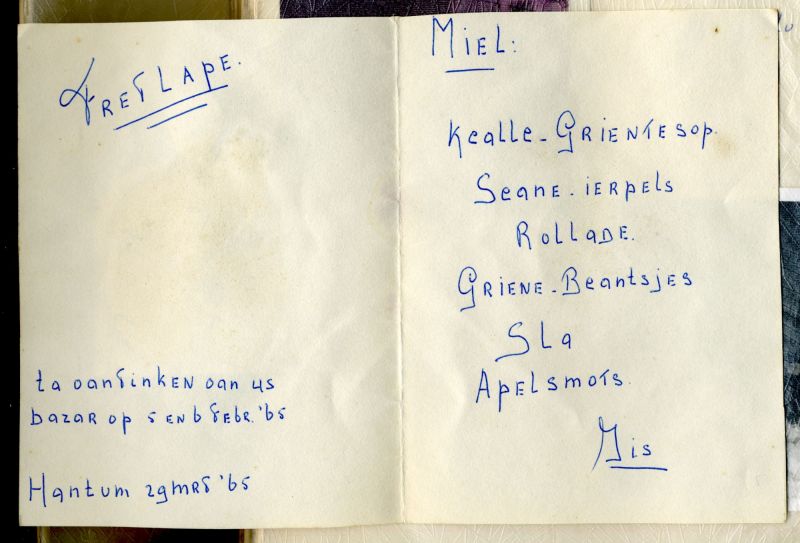 FRETLAPE.
ta oantinken oan us
bazar op 5 en 6 febr. '65
Hantum 29 mrt '65
Miel:
Kealle-Grientesop.
Seane-ierpels
Rollade.
Griene-Beantsjes
Sla
Apelsmots.
Iis